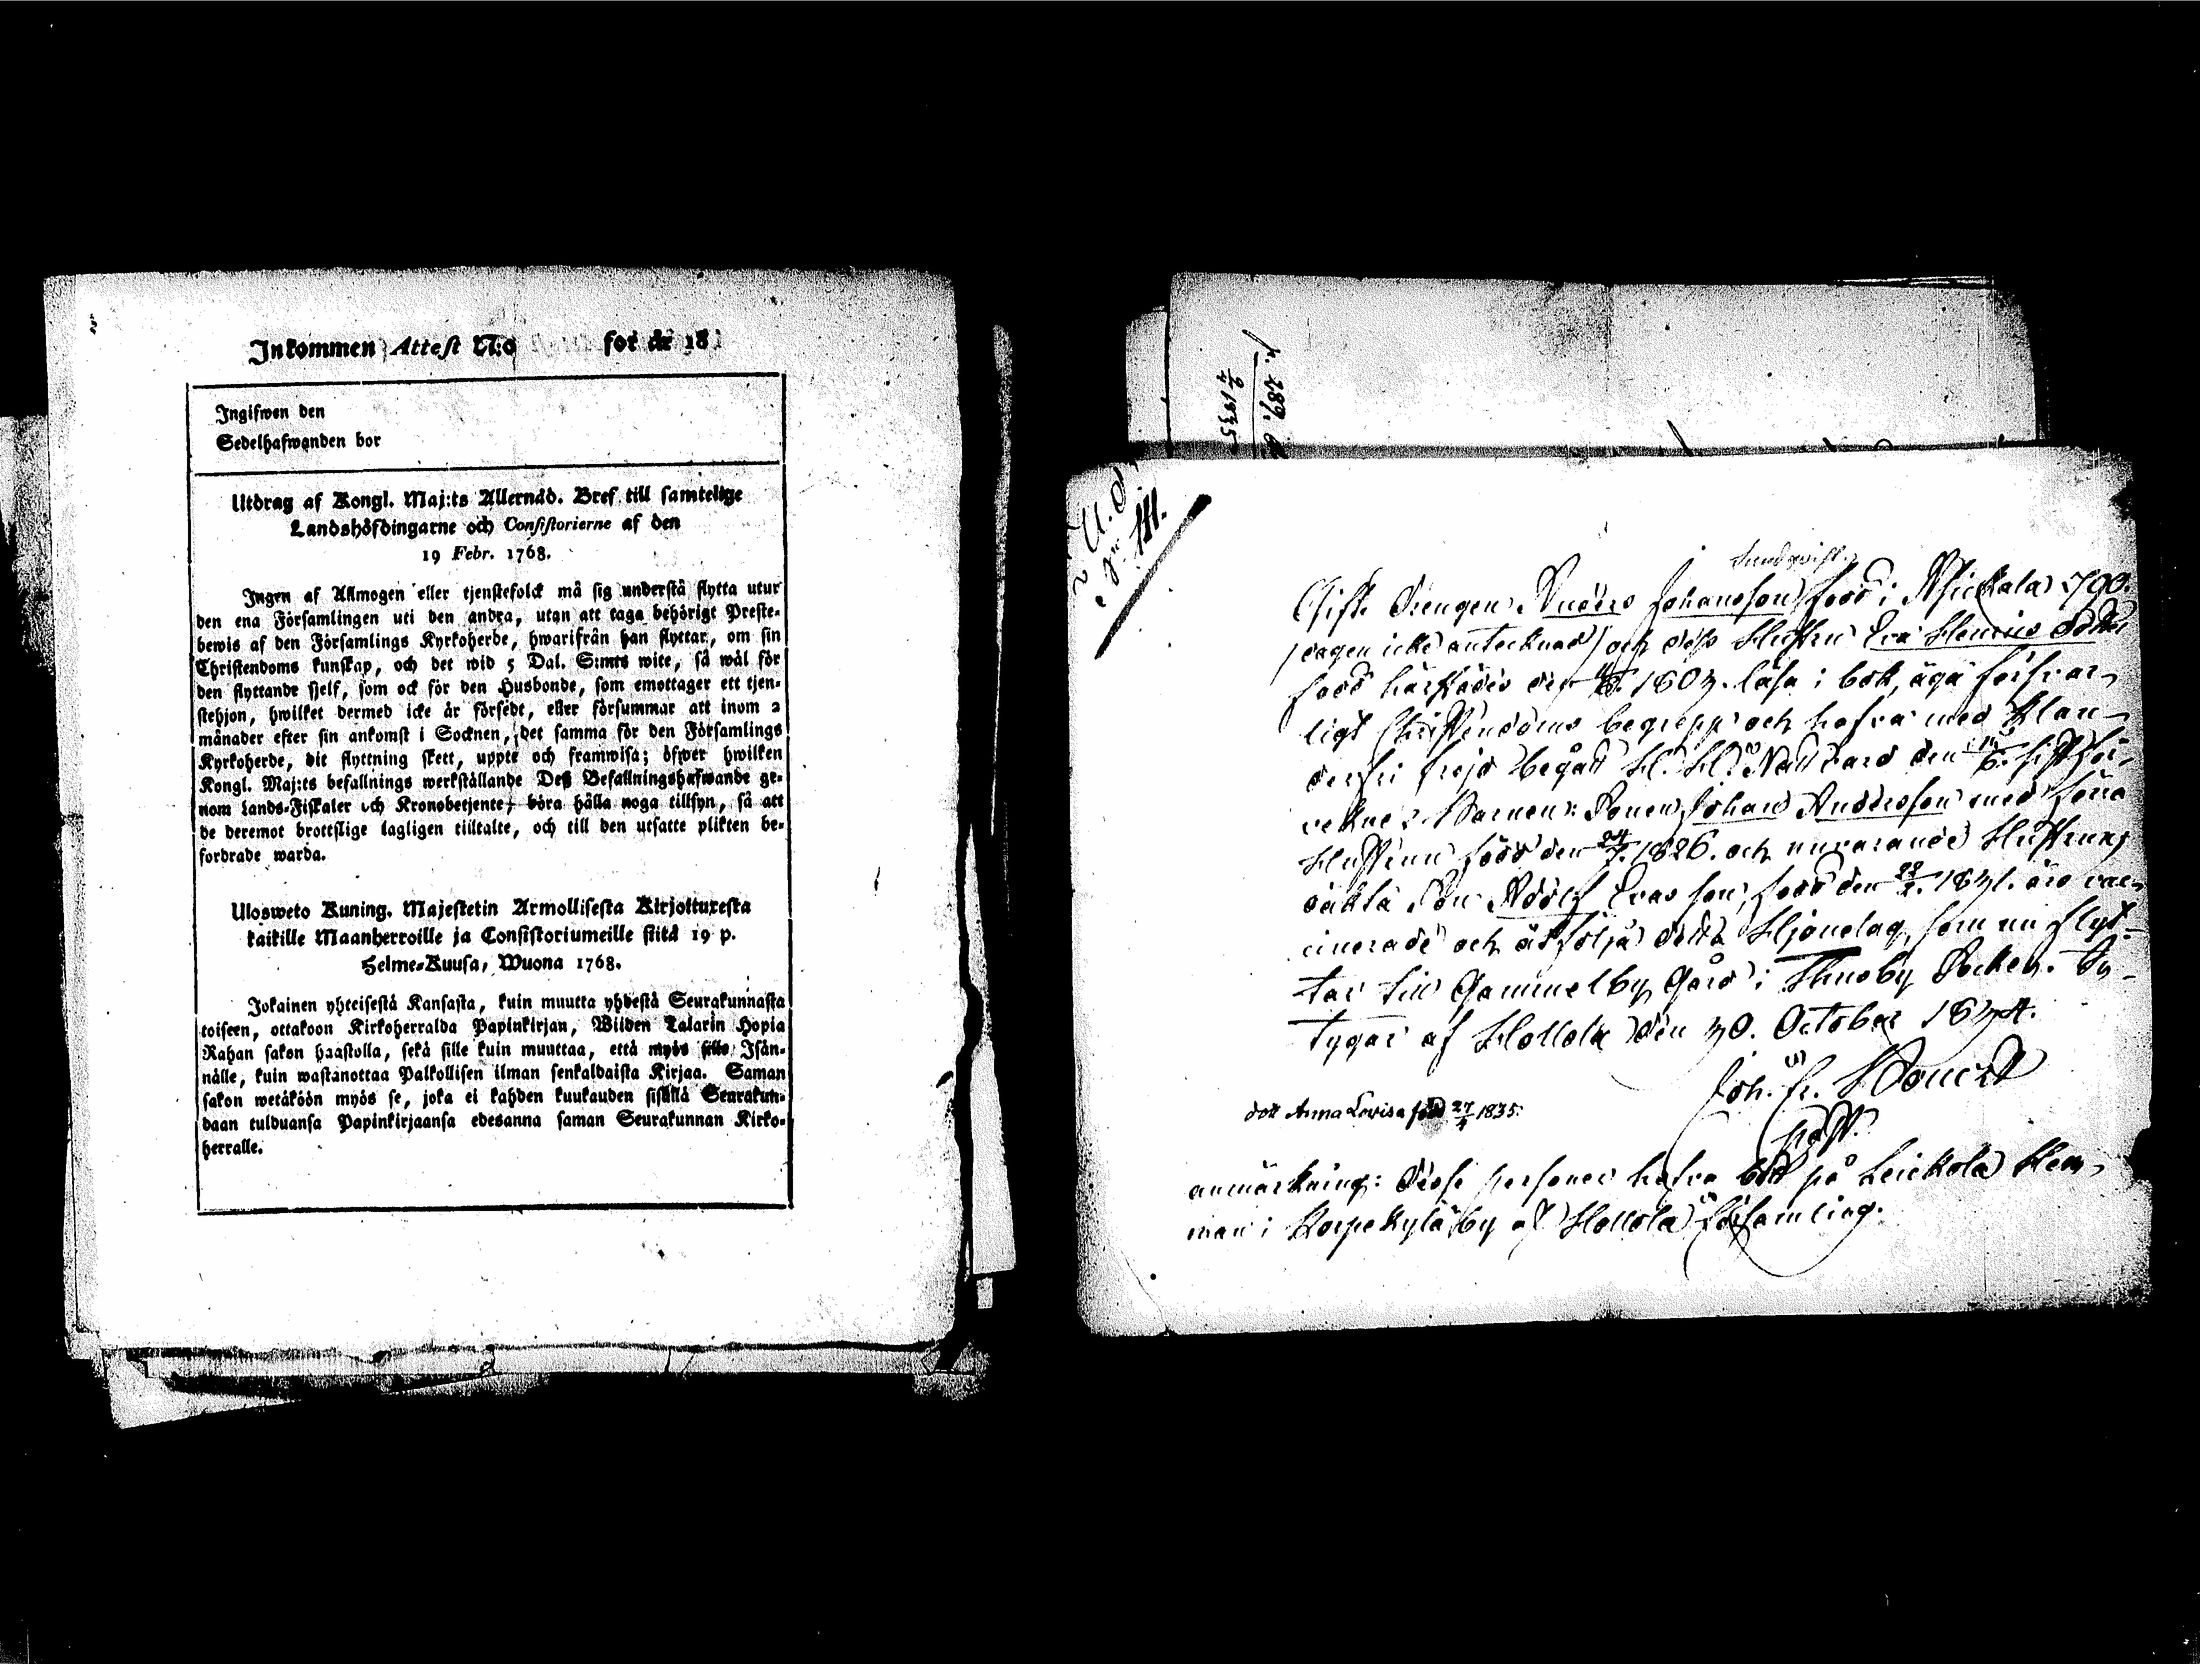 Inkommen Attest N:o for år 18
Ingifwen den
Sedelhafwanden bor
Utdrag af Kongl. Maj:ts Allernåd. Bref till samtelige
Landshöfdingarne och Consistorierne af den
19 Febr. 1768.
Ingen af Allmogen eller tjenstefolck må sig understå flytta utur
den ena Församlingen uti den andra, utan att taga behörigt Preste-
bewis af den Församlings Kyrkoherde, hwarifrån han flyttar, om sin
Christendoms kunskap, och det wid 5 Dal. S:mts wite, så wäl för
den flyttande sjelf, som ock för den Husbonde, som emottager ett tjen-
stehjon, hwilket dermed icke är försedt, eller försummar att inom 2
månader efter sin ankomst i Socknen, det samma för den Församlings
Kyrkoherde, dit flyttning skett, uppte och framwisa; öfwer hwilken
Kongl. Maj:ts befallnings werkställande Deß Befallningshafwande ge-
nom Lands-Fiskaler och Kronobetjente, böra hålla noga tillsyn, så att
de deremot brottslige lagligen tilltalte, och till den utsatte plikten be-
fordrade warda.
Ulosweto Kuning. Majestetin Armollisesta Kirjoituxesta
kaikille Maanherroille ja Consistoriumeille siitä 19 p.
Helme-Kuusa, Wuona 1768.
Jokainen yhteisestä Kansasta, kuin muutta yhdestä Seurakunnasta
toiseen, ottakoon Kirkoherralda Papinkirjan, Wiiden Talarin Hopia
Rahan sakon haastolla, sekä sille kuin muuttaa, että myös sille Isän-
nälle, kuin wastanottaa Palkollisen ilman senkaldaista Kirjaa. Saman
sakon wetäköön myös se, joka ei kahden kuukauden sisällä Seurakun-
daan tulduansa Papinkirjaansa edesanna saman Seurakunnan Kirko-
herralle.
p. 289.
2/4 1835
N:o 111.
Sundqvist
Gifte Drengen Anders Johansson född i 790.
/dagen icke antecknad/ och dess Hustru Eva Henrics dotter
född härstädes den 1803. läsa i bok, äga försvar-
ligt Christendoms begrepp och hafva med klan-
derfri frejd begådt H. H. Nattvard den sistför-
vekne. Barnen: Sonen Johan Andersson med förra
Hustrun född den 24/7. 1826. och nuvarande Hustruns
oäkta Son Adolf Evasson, född den 1831. äro vac-
cinerade och åtfölja detta Hjonelag, som nu flyt-
tar till Gammelby Gård i Thusby Socken. Be-
tygar af Hollola den 30. October 1834.
Joh. Fr.
Past.
dott Anna Lovisa född 27/4 1835.
anmärkning: desse personer hafva bott på Leickola Hem-
man i Korpikylä by af Hollola församling.